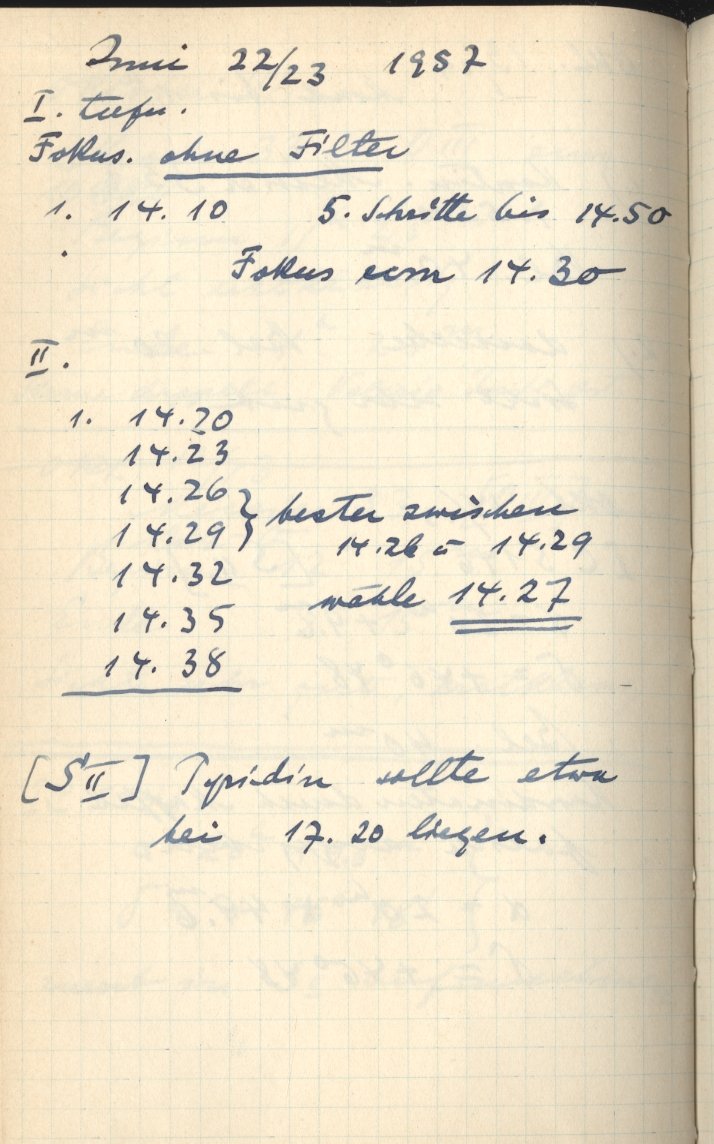 Juni 22/23 1957
I. tiefer.
Fokus. ohne Filter
1. 14.10 5. Schritte bis 14.50
Fokus 14.30
II.
1. 14.20
14.23
14.26 } bester zwischen
14.29 } 14.26 – 14.29
14.32 wähle 14.27
14.35
14.38
[SII] sollte etwa
bei 17.20 liegen.